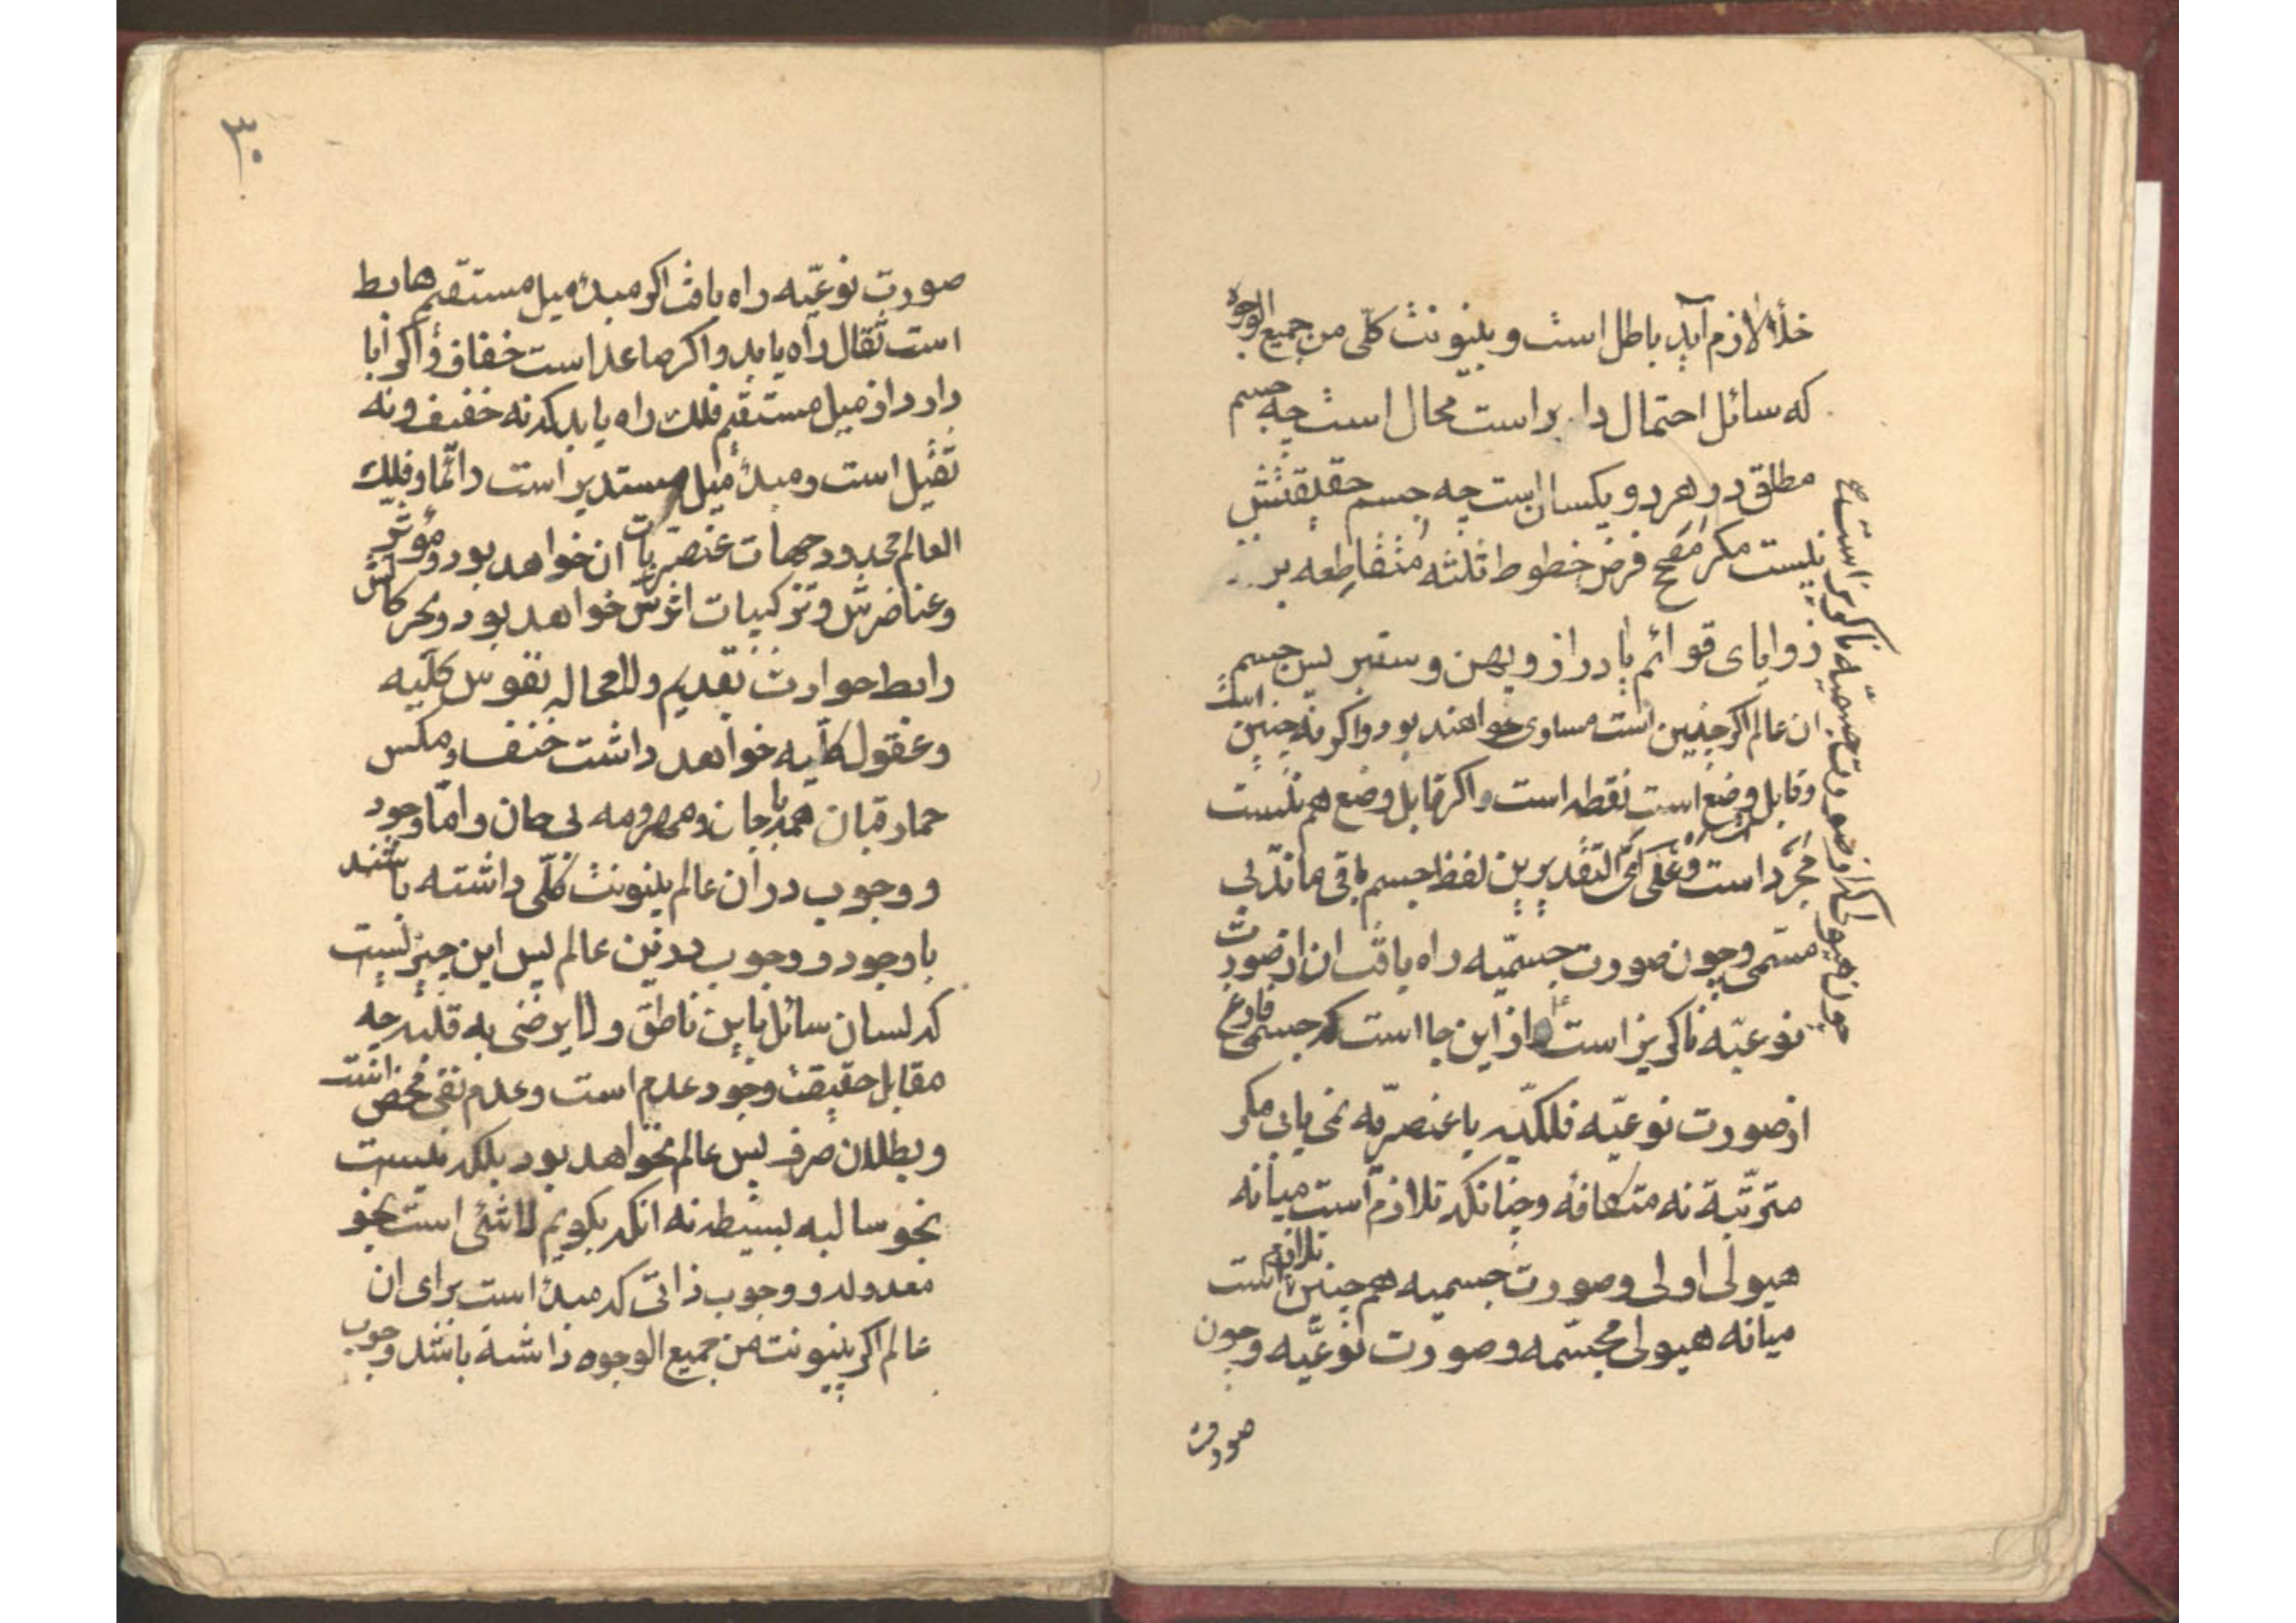 خلأ لازم آید باطل است و بینونت کلّی من جمیع الوجوه
که سائل احتمال دا براست محال است چه جسم
مطلق در هر دو یکسان است چه جسم حقیقتش
نیست مکر فرض خطوط ثلثه متقاطعه بر
زوایای قوائم یا دراز و پهن و ستبر پس جسم
ان عالم اکر چنین است مساوی خواهند بود و اکر نه چنین است
و قابل وضع است نقطه است و اکر قابل وضع هم نیست
مجرّد است و علی ایّ التقدیرین لفظ جسم باقی ماند بی
مسمی و چون صورت جسمیّه راه یافت ان از صورت
نوعیّه ناکریز است از این جا است که جسمی فارغ
از صورت نوعیّه فلکیّه یا عنصریّه نمی یابی مکر
مترتّبة نه متکافئه و چنانکه تلازم است میانه
هیولی اولی و صورت جسمیه هم چنین تلازم است
میانه هیولی مجسّمه و صورت نوعیّه و چون
صورت
چون هیولی را از صورت جسمیّه ناکریز است
۳۰
صورت نوعیّه راه یافت اکر مبدأ میل مستقیم هابط
است ثقال راه یابد و اکر صاعد است خفاف و اکر ابا
دارد از میل مستقیم فلک راه یابد که نه خفیف و نه
ثقیل است و مبدأ میل مستدیر است دائما و فلک
العالم محدود جهات عنصریات ان خواهد بود و مؤثر
و عناصرش و ترکیبات اثرش خواهد بود و بحرکاتش
رابط حوادث بقدیم و لا محاله نفوس کلّیه
و عقول کلّیه خواهد داشت خنفساء و مکس
حمار قبان همه با جان و مهرومه بی جان و امّا وجود
و وجوب در ان عالم بینونت کلّی داشته باشند
با وجود و وجوب در این عالم پس این چیز نیست
که لسان سائل باین ناطق و لا یرضی به قلبه چه
مقابل حقیقت وجود عدم است و عدم نفی محض است
و بطلان صرف پس عالم نخواهد بود بلکه نیست
بنحو سالبه بسیطه نه انکه بکویم لا شئی است بنحو
معدوله و وجوب ذاتی که مبدأ است برای ان
عالم اکر بینونت من جمیع الوجوه داشته باشد وجوب